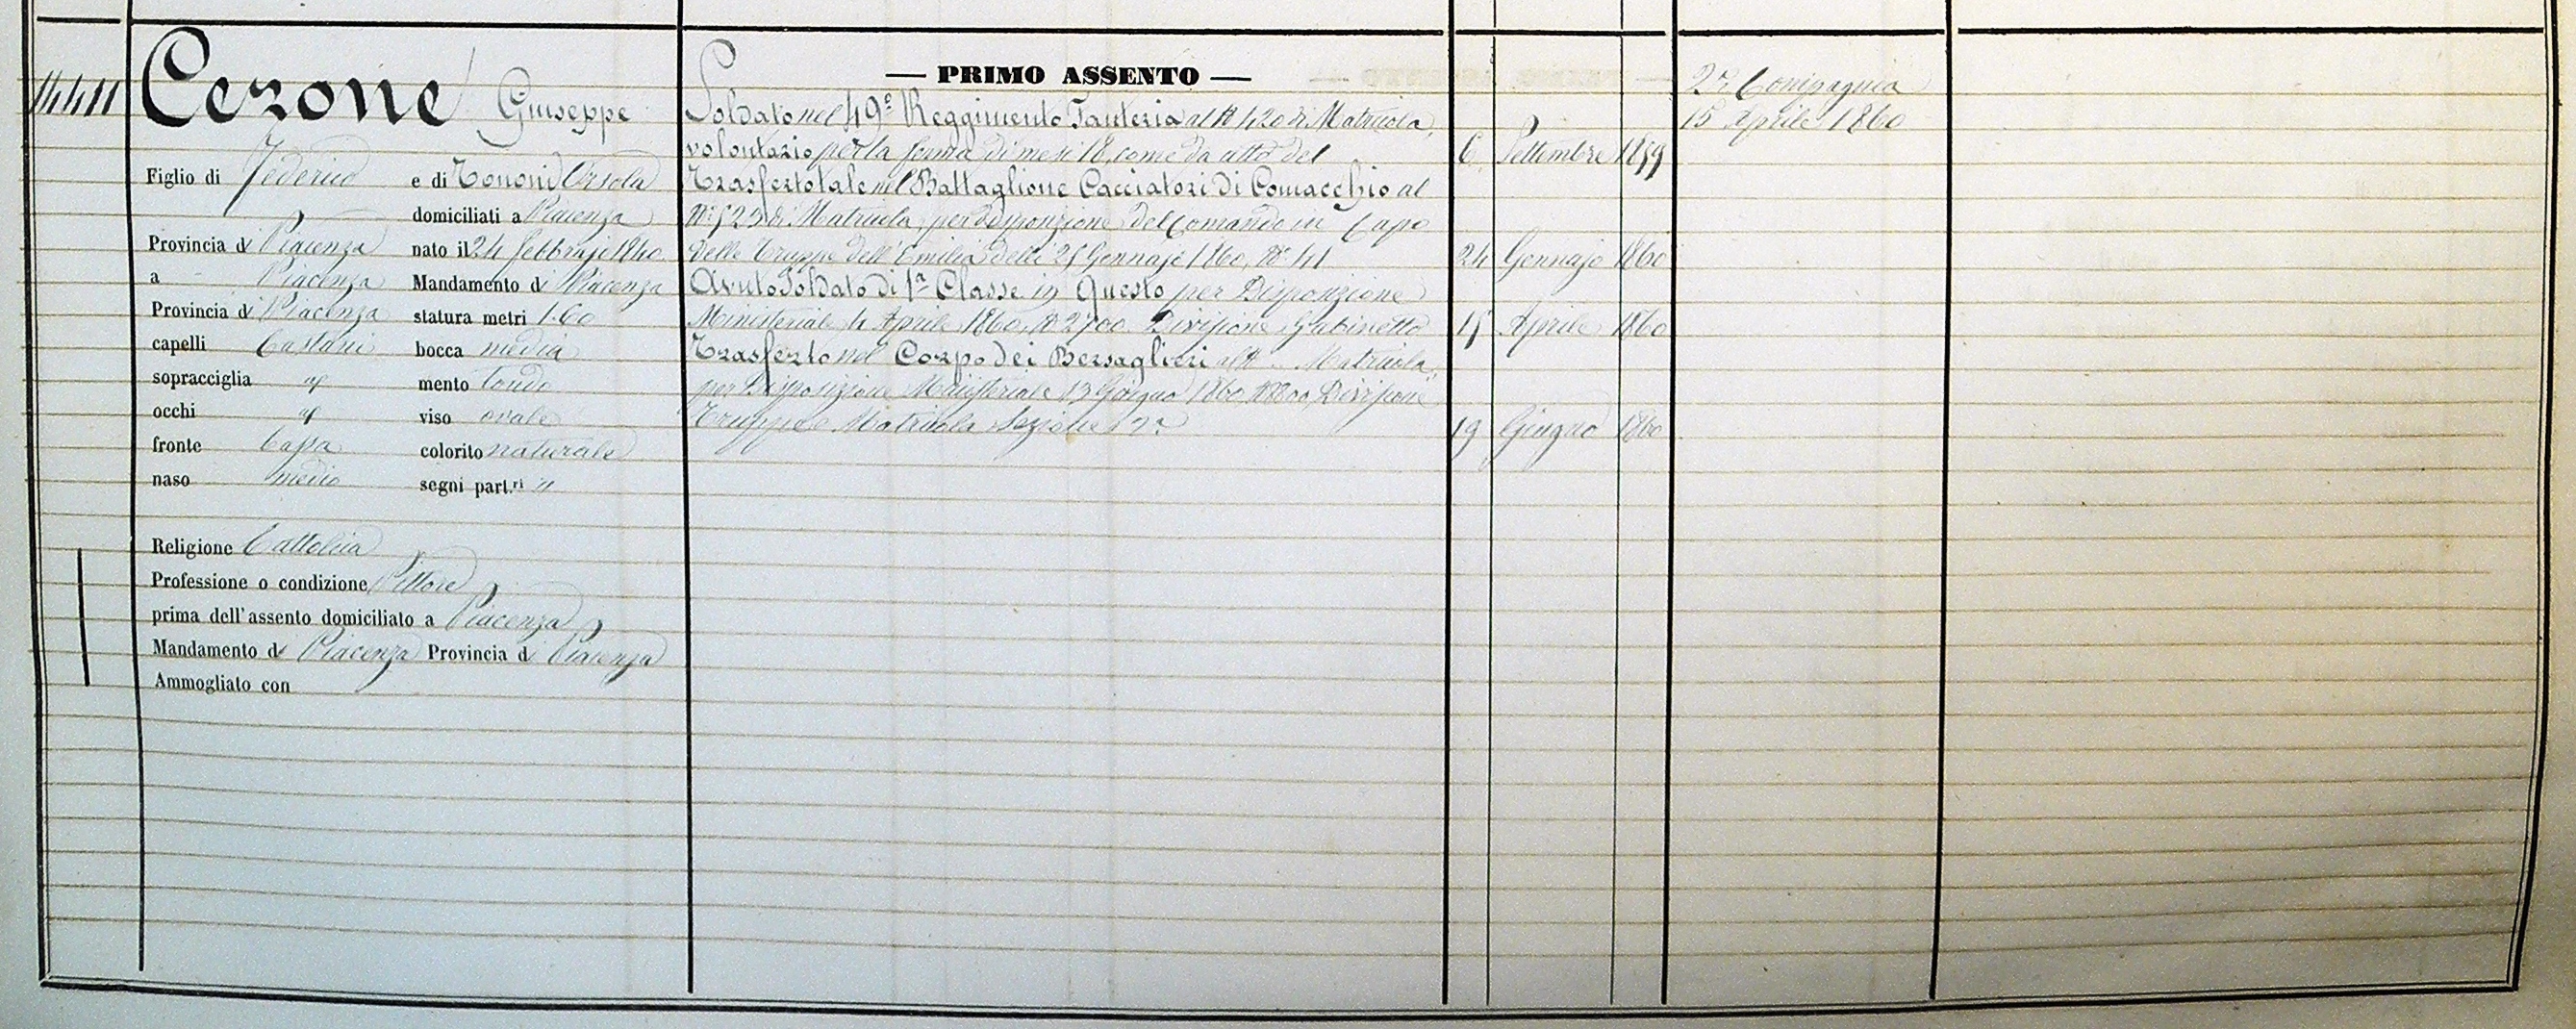 14411 Cerone Giuseppe
Figlio di Federico e di Tononi Orsola
domiciliati a Piacenza
Provincia di Piacenza nato il 24 febbrajo 1840
a Piacenza Mandamento di Piacenza
Provincia di Piacenza statura metri 1.60
capelli Castani bocca media
sopracciglia id mento tondo
occhi id viso ovale
fronte bassa colorito naturale
naso medio segni part.ri "
Religione Cattolica
Professione o condizione Pittore
prima dell'assento domiciliato a Piacenza
Mandamento di Piacenza Provincia di Piacenza
Ammogliato con
— PRIMO ASSENTO —
Soldato nel 49º Reggimento Fanteria al Nº 420 di Matricola,
volontario per la ferma di mesi 18, come da atto del 6 Settembre 1859
Trasferto tale nel Battaglione Cacciatori di Comacchio al
Nº 523 di Matricola, per disposizione del Comando in Capo
delle Truppe dell'Emilia delli 25 Gennajo 1860, Nº 41 24 Gennajo 1860
Avuto Soldato di 1ª Classe in Questo per Disposizione
Ministeriale 4 Aprile 1860, Nº 2700 Divisione Gabinetto 15 Aprile 1860
Trasferto nel Corpo dei Bersaglieri al Nº .. Matricola,
per Disposizione Ministeriale 13 Giugno 1860 Nº 8800, Divisione
Truppe Matricola Sezione 2ª 19 Giugno 1860
2ª Compagnia
15 Aprile 1860